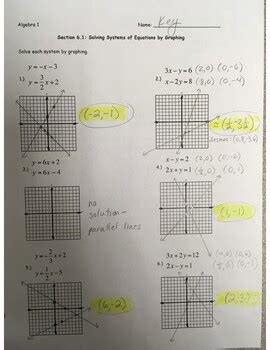 Algebra 1 Name: Key
Section 6.1: Solving Systems of Equations by Graphing
Solve each system by graphing.
1.) y = -x - 3
y = 3/2 x + 2
(-2, -1)
2.) 3x - y = 6 (2,0) (0,-6)
x - 2y = 8 (8,0) (0,-4)
3.) y = 6x + 2
y = 6x - 4
no
solution -
parallel lines
4.) x - y = 2 (2,0) (0,-2)
(1, -1)
5.)
(6, -2)
6.) 3x + 2y = 12
2x - y = 1
(2, 3)